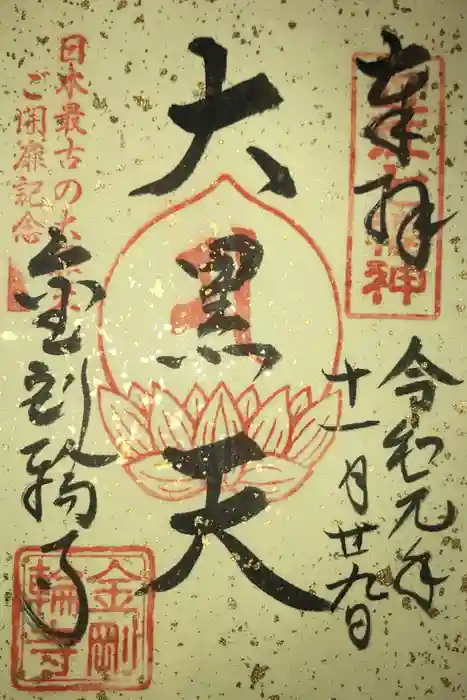 奉拝
令和元年
十一月廿九日
大黒天
日本最古の大黒
ご開扉記念
金剛輪寺
金剛
輪寺